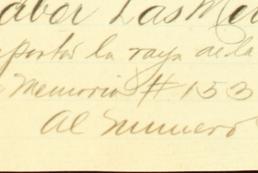 abor Las Me
portó la raya de la
Memoria #153
al numero